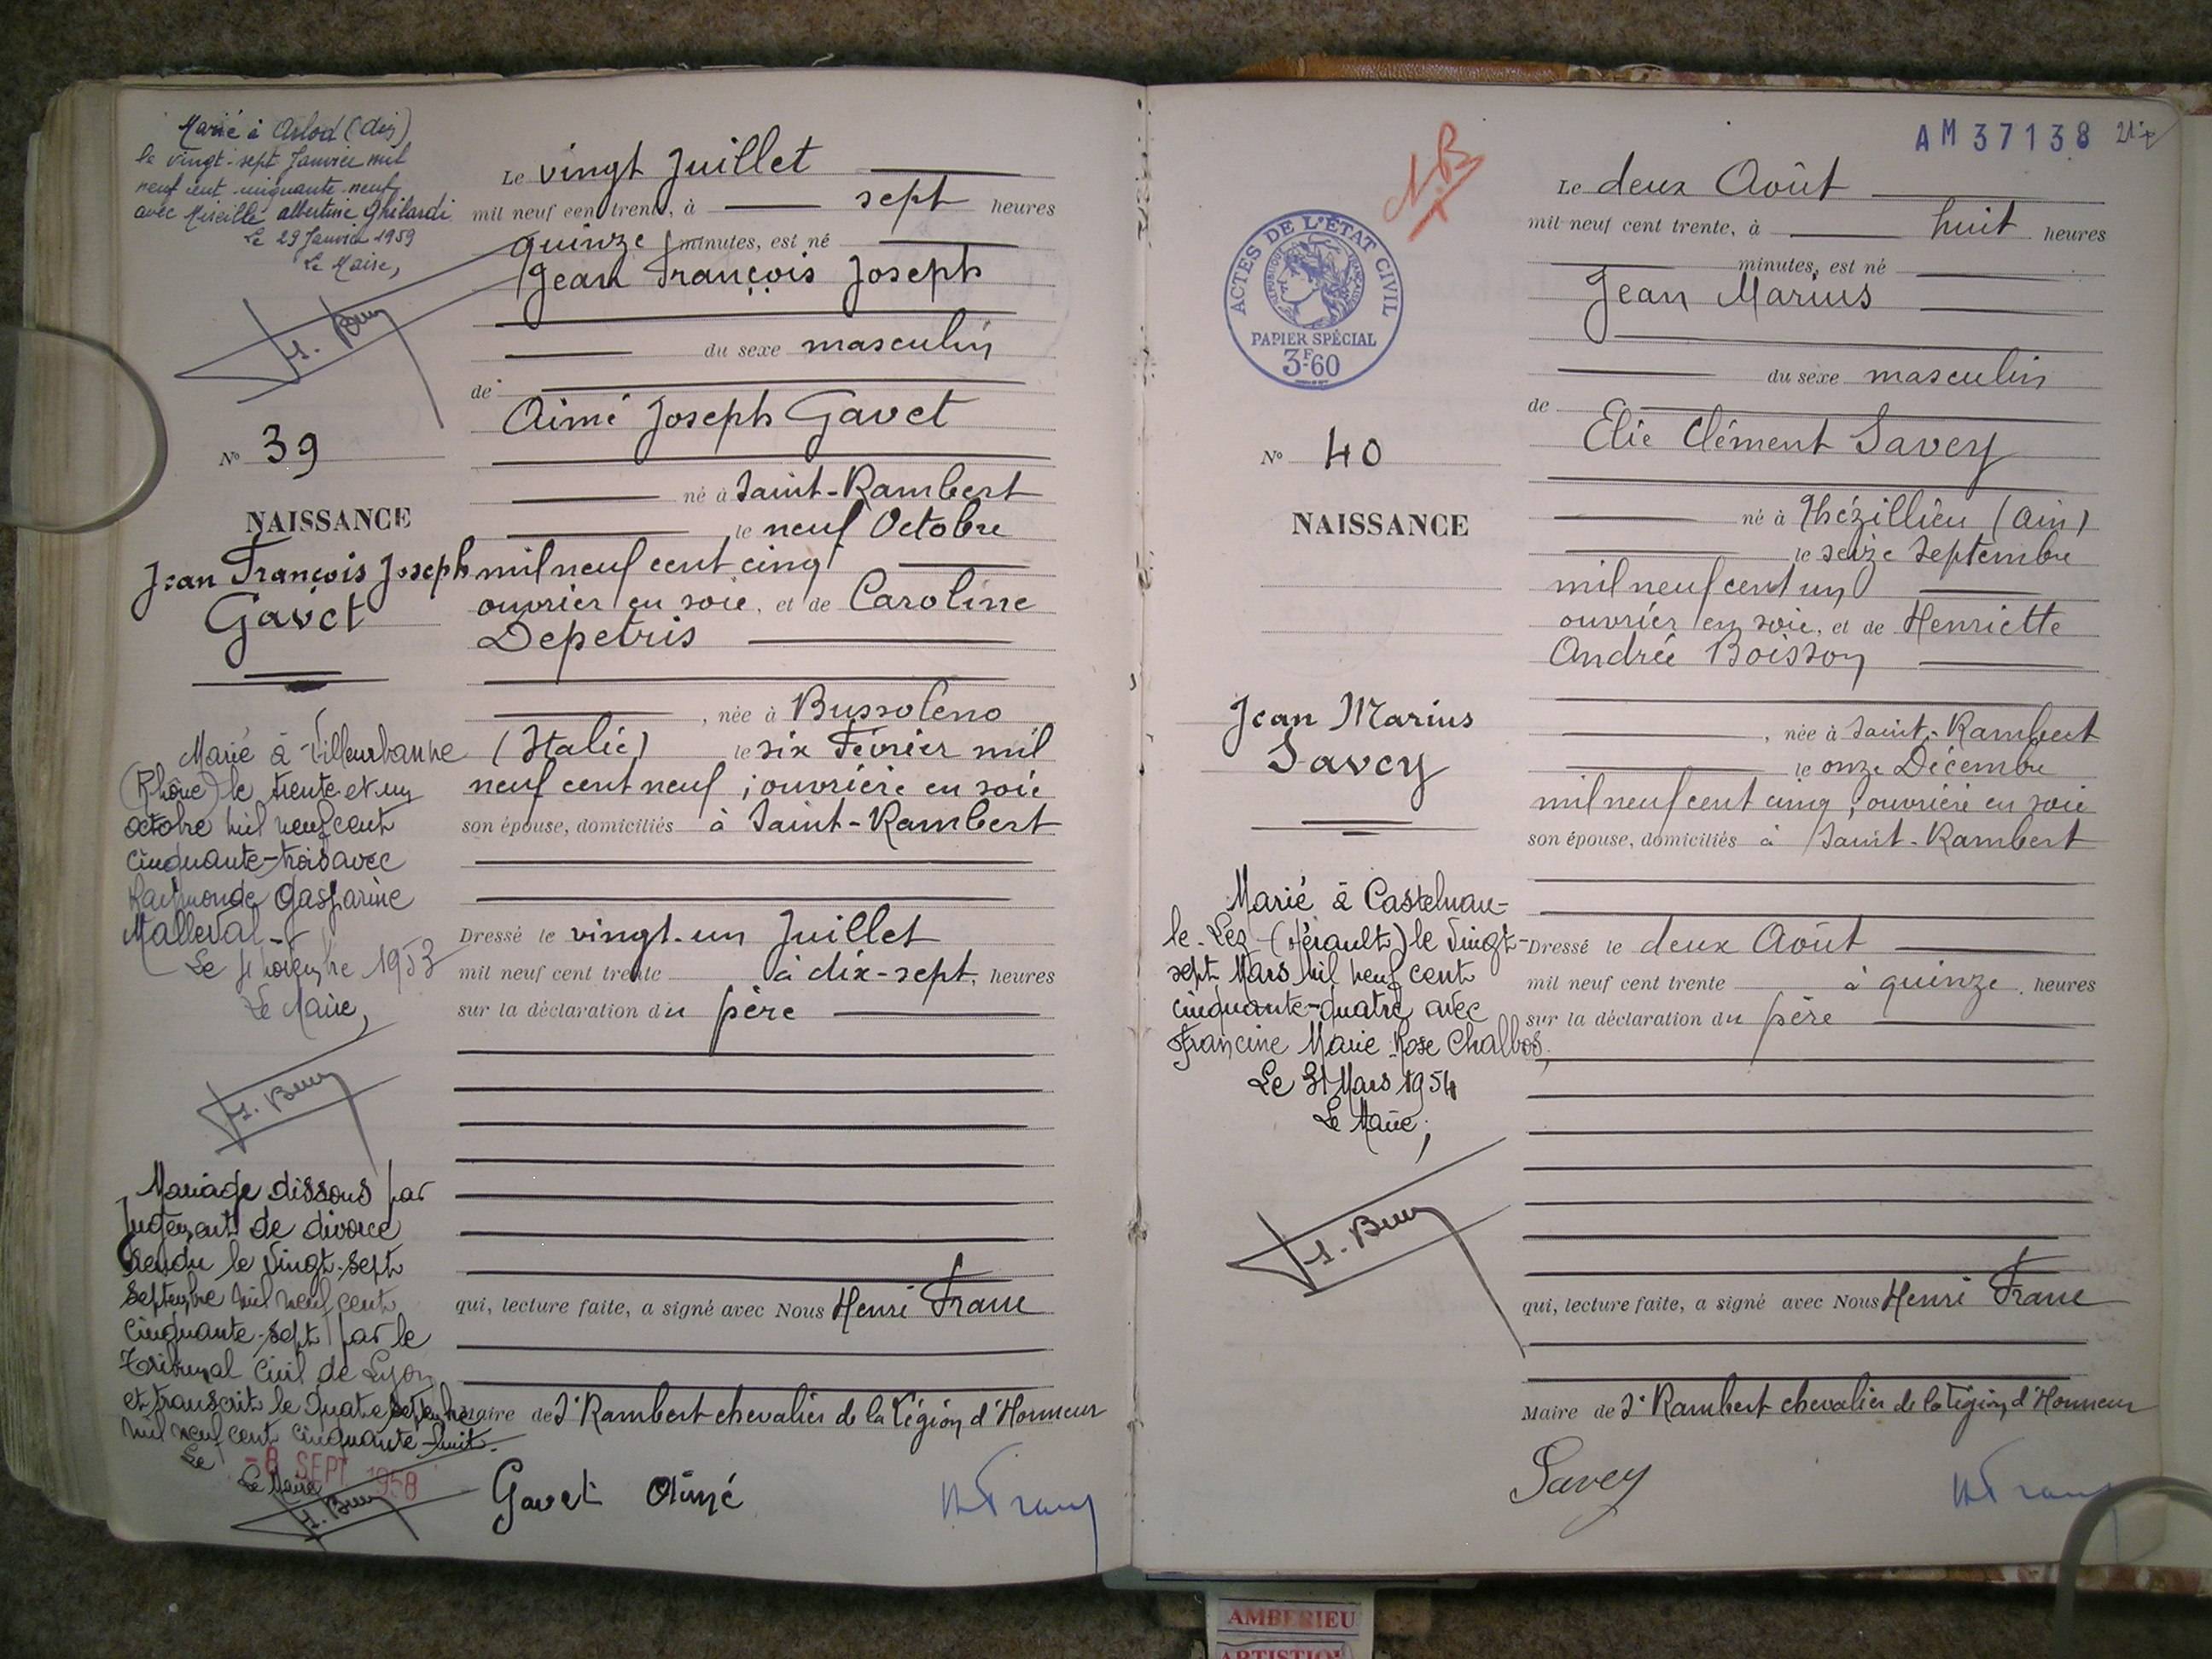 Marié à Arlod (Ain)
le vingt-sept Janvier mil
neuf cent cinquante-neuf
avec Mireille albertine Ghilardi
Le 29 Janvier 1959
Le Maire,
N° 39
NAISSANCE
Jean François Joseph
Gavet
Marié à Villeurbanne
(Rhône) le trente et un
octobre mil neuf cent
cinquante-trois avec
Raymonde Gasparine
Malleval
Le 4 Novembre 1953
Le Maire,
Mariage dissous par
Jugement de divorce
rendu le vingt-sept
septembre mil neuf cent
cinquante-sept par le
Tribunal Civil de Lyon
et transcrit le quatre septembre
mil neuf cent cinquante-huit.
Le -8 SEPT 1958
Le Maire
Le vingt Juillet
mil neuf cent trente, à sept heures
quinze minutes, est né
Jean François Joseph
du sexe masculin
de
Aimé Joseph Gavet
né à Saint-Rambert
le neuf Octobre
mil neuf cent cinq
ouvrier en soie, et de Caroline
Depetris
, née à Bussoleno
(Italie) le six Février mil
neuf cent neuf ; ouvrière en soie
son épouse, domiciliés à Saint-Rambert
Dressé le vingt-un Juillet
mil neuf cent trente à dix-sept, heures
sur la déclaration du père
qui, lecture faite, a signé avec Nous Henri Franc
Maire de St Rambert chevalier de la Légion d'Honneur
Gavet Aimé
H Franc
AM37138
ACTES DE L'ÉTAT CIVIL
RÉPUBLIQUE FRANÇAISE
PAPIER SPÉCIAL
3F60
N° 40
NAISSANCE
Jean Marius
Savey
Marié à Castelnau-
le-Lez (Hérault) le vingt-
sept Mars mil neuf cent
cinquante-quatre avec
Francine Marie Rose Chalbos,
Le 31 Mars 1954
Le Maire,
Le deux Août
mil neuf cent trente, à huit heures
minutes, est né
Jean Marius
du sexe masculin
de
Elie Clément Savey
né à Thézillieu (Ain)
le seize Septembre
mil neuf cent un
ouvrier en soie, et de Henriette
Andrée Boisson
, née à Saint-Rambert
le onze Décembre
mil neuf cent cinq ; ouvrière en soie
son épouse, domiciliés à Saint-Rambert
Dressé le deux Août
mil neuf cent trente à quinze, heures
sur la déclaration du père
qui, lecture faite, a signé avec Nous Henri Franc
Maire de St Rambert chevalier de la Légion d'Honneur
Savey
H Franc
AMBERIEU